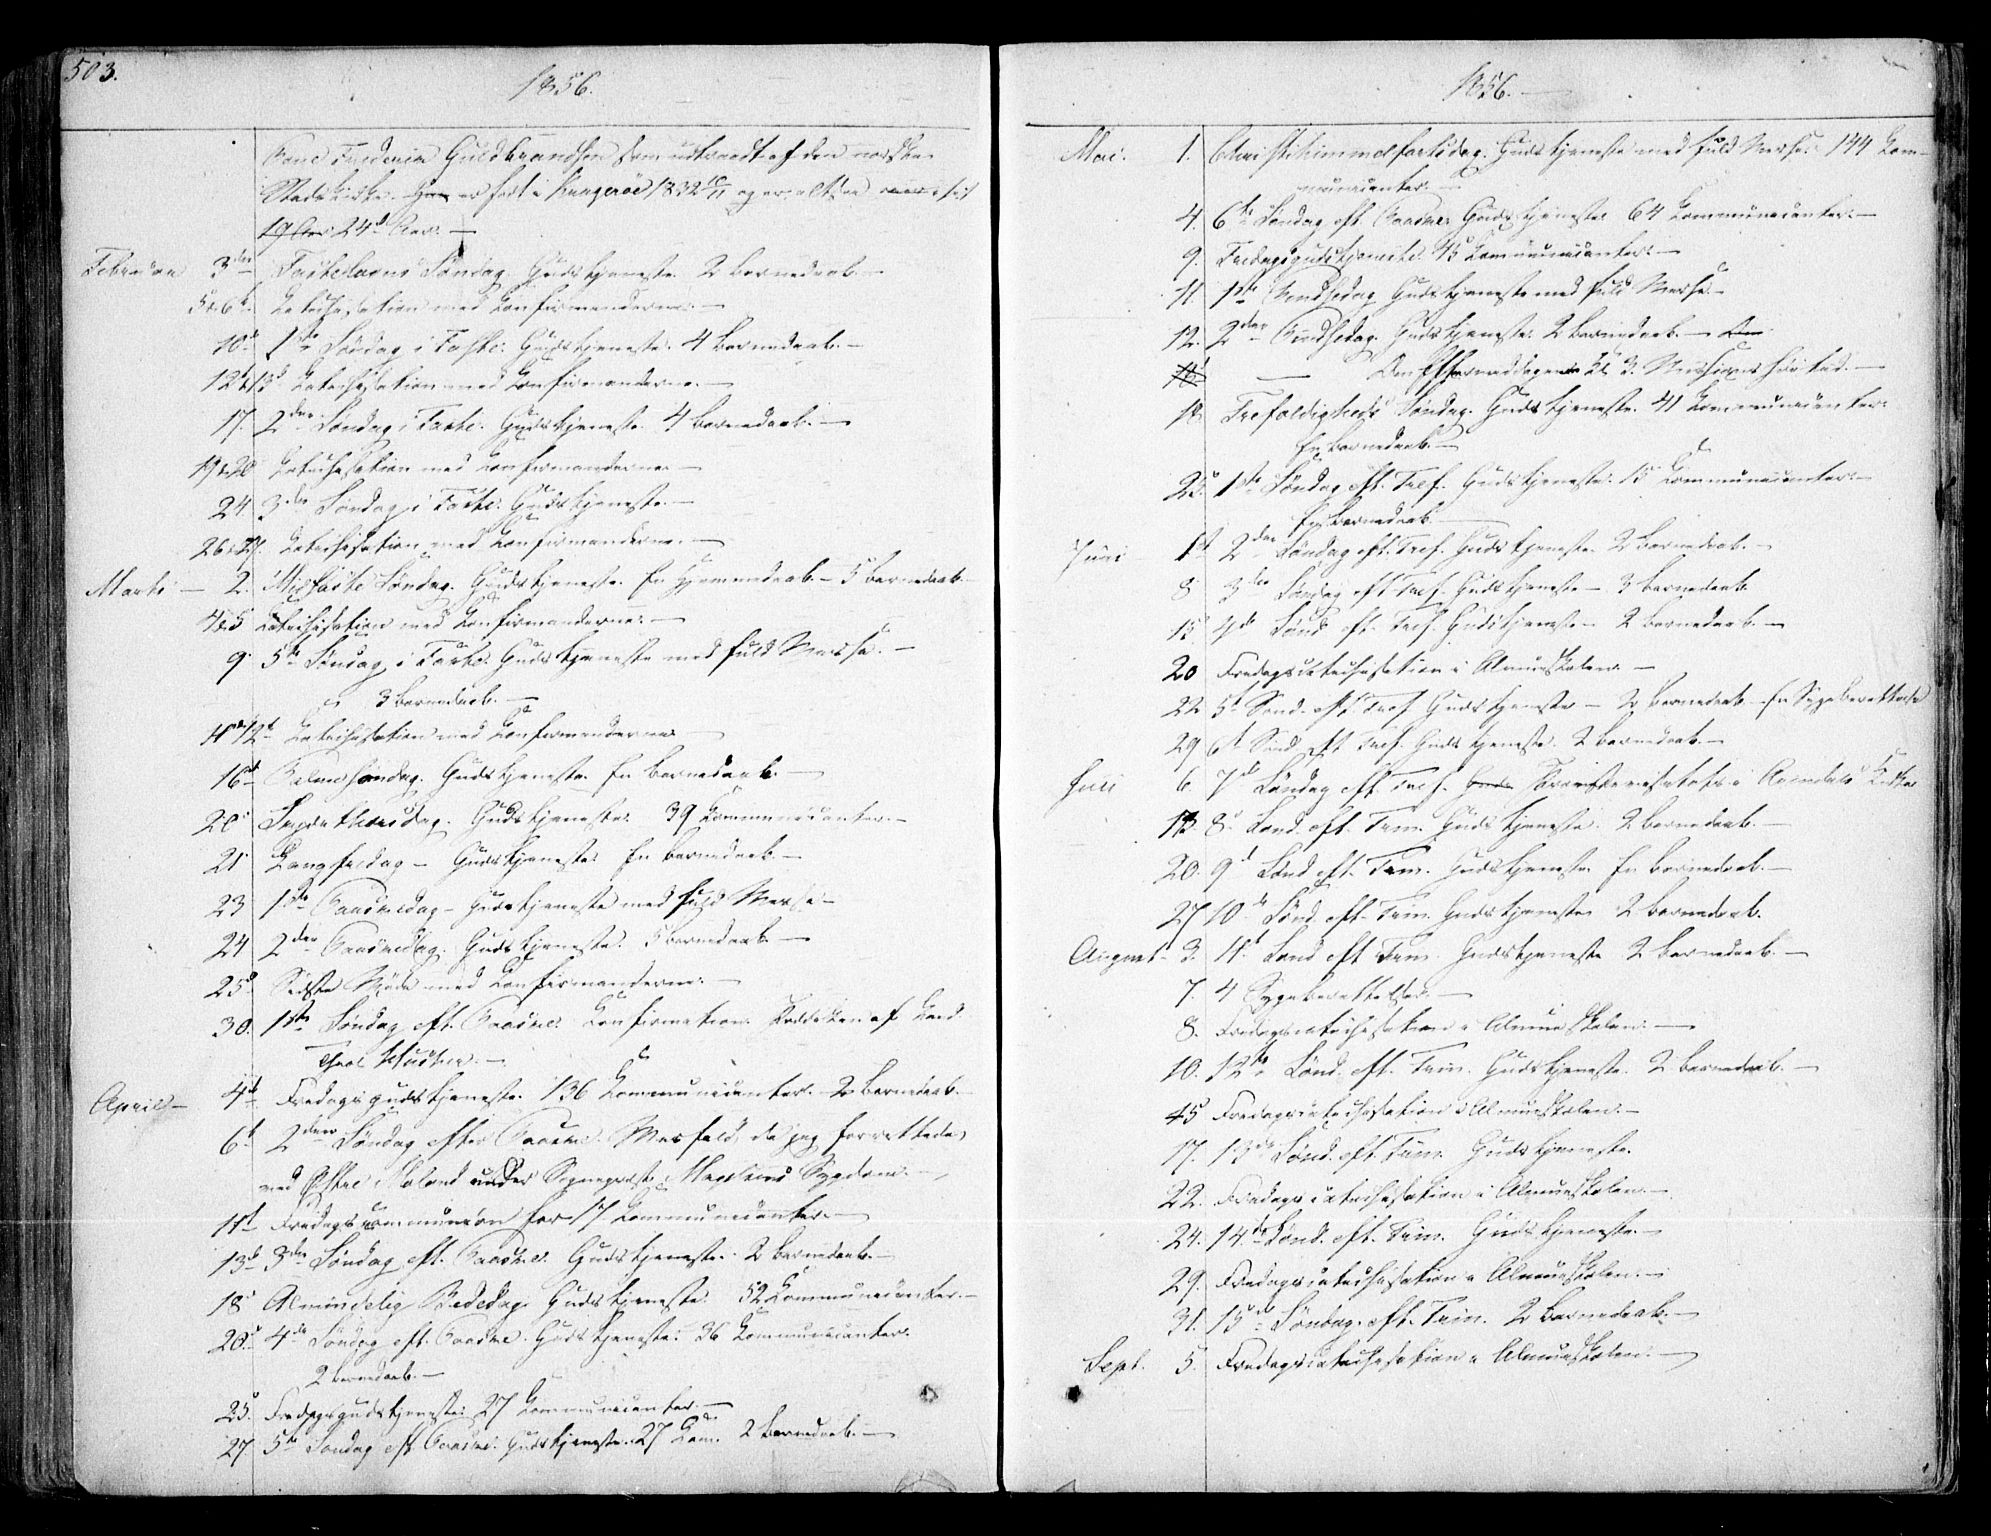 503.
1856.
Frederik Guldbrandsen som udtraadt af den norske
Statskirke. er født i Kragerøe 1832 10/11 og er altsaa
19 Aar 24d Aar. —
Februar 3die Fastelavns Søndag. Gudstjeneste. 2 Barnedaab. —
5 & 6t. Catechisation med Confirmanderne. —
10d 1ste Søndag i Faste. Gudstjeneste. 4 Barnedaab. —
12 & 13d Catechisation med Confirmanderne. —
17. 2den Søndag i Faste. Gudstjeneste. 4 Barnedaab. —
19 & 20 Catechisation med Confirmanderne —
24 3die Søndag i Faste. Gudstjeneste. —
26 & 27. Catechisation med Confirmanderne. —
Marts — 2. Midfaste Søndag. Gudstjeneste. En Hjemmedaab. — 5 Barnedaab.
4 & 5 Catechisation med Confirmanderne. —
9. 5te Søndag i Faste. Gudstjeneste med fuld Messe. —
3 Barnedaab. —
11 & 12t Catechisation med Confirmanderne —
16d Palmesøndag. Gudstjeneste. En Barnedaab. —
20. Skjærthorsdag. Gudstjeneste. 39 Communicanter. —
21 Langfredag — Gudstjeneste. En Barnedaab. —
23 1ste Paaskedag — Gudstjeneste med fuld Messe —
24 2den Paaskedag. Gudstjeneste. 5 Barnedaab. —
25d Sidste Møde med Confirmanderne. —
30. 1ste Søndag eft. Paaske. Confirmation. af Cand.
Theol. —
April — 4d Fredagsgudstjeneste. 136 Communicanter. — 2 Barnedaab. —
6t 2den Søndag efter Paaske. Messefald, da jeg forrettede
ved Østre Moland under Sognepræst Sygdom. —
11t Fredagscommunion for 17 Communicanter. —
13d 3die Søndag eft. Paaske. Gudstjeneste. 2 Barnedaab. —
18 Almindelig Bededag. Gudstjeneste. 52 Communicanter. —
20d 4de Søndag eft. Paaske. Gudstjeneste. 36 Communicanter.
2 Barnedaab. —
25. Fredagsgudstjeneste. 27 Communicanter. —
27 5te Søndag eft Paaske. Gudstjeneste. 27 Com. 2 Barnedaab. —
1856. —
Mai. 1. Christi himmelfartsdag. Gudstjeneste med fuld Messe. 144 Com-
municanter. —
4. 6te Søndag eft. Paaske. Gudstjeneste 64 Communicanter. —
9. Fredagsgudstjeneste. 45 Communicanter. —
11. 1ste Pindsedag Gudstjeneste med fuld Messe. —
12. 2den Pindsedag. Gudstjeneste. 2 Barnedaab. — Om
— Om Eftermiddagen Kl 3. Missionshøitid. —
18 Trefoldigheds Søndag. Gudstjeneste. 41 Communicanter.
En Barnedaab. —
25. 1ste Søndag eft. Tref. Gudstjeneste. 15 Communicanter. —
En Barnedaab. —
Juni 1st 2den Søndag eft. Tref. Gudstjeneste. 2 Barnedaab. —
8 3die Søndag eft Tref. Gudstjeneste — 3 Barnedaab.
15d 4de Sønd. eft. Tref. Gudstjeneste — 2 Barnedaab. —
20 Fredagscatechisation i Almueskolen. —
22 5t Sønd. eft Tref Gudstjeneste — 2 Barnedaab. En Sygeberettelse
29 6t Sønd eft Tref. Gudstjeneste. 2 Barnedaab. —
Juli 6. 7d Søndag eft Tref. Guds i Arendals Kirke
13. 8d. Sønd. eft. Trin. Gudstjeneste. 2 Barnedaab. —
20. 9d Sønd eft. Trin. Gudstjeneste. En Barnedaab. —
27 10de Sønd. eft. Trin. Gudstjeneste 2 Barnedaab.
August — 3. 11t Sønd eft Trin. Gudstjeneste 2 Barnedaab. —
7. 4 Sygeberettelser. —
8. Fredagscatechisation i Almueskolen. —
10. 12te Sønd. eft. Trin. Gudstjeneste. 2 Barnedaab. —
15 Fredagscatechisation i Almueskolen. —
17. 13de Sønd. eft. Trin. Gudstjeneste.
22. Fredagscatechisation i Almueskolen. —
24. 14de Sønd. eft. Trin. Gudstjeneste. —
29. Fredagscatechisation i Almueskolen. —
31. 15de Søndag. eft. Trin. 2 Barnedaab. —
Sept. 5. Fredagscatechisation i Almueskolen. —